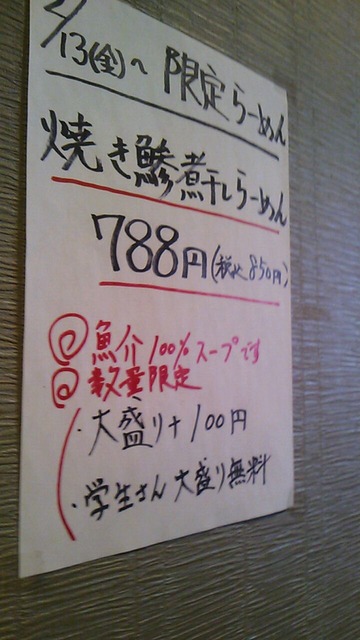 /13(金)〜 限定らーめん
焼き鯵煮干しらーめん
788円(税込850円)
◎魚介100%スープです
◎数量限定
・大盛り+100円
・学生さん大盛り無料